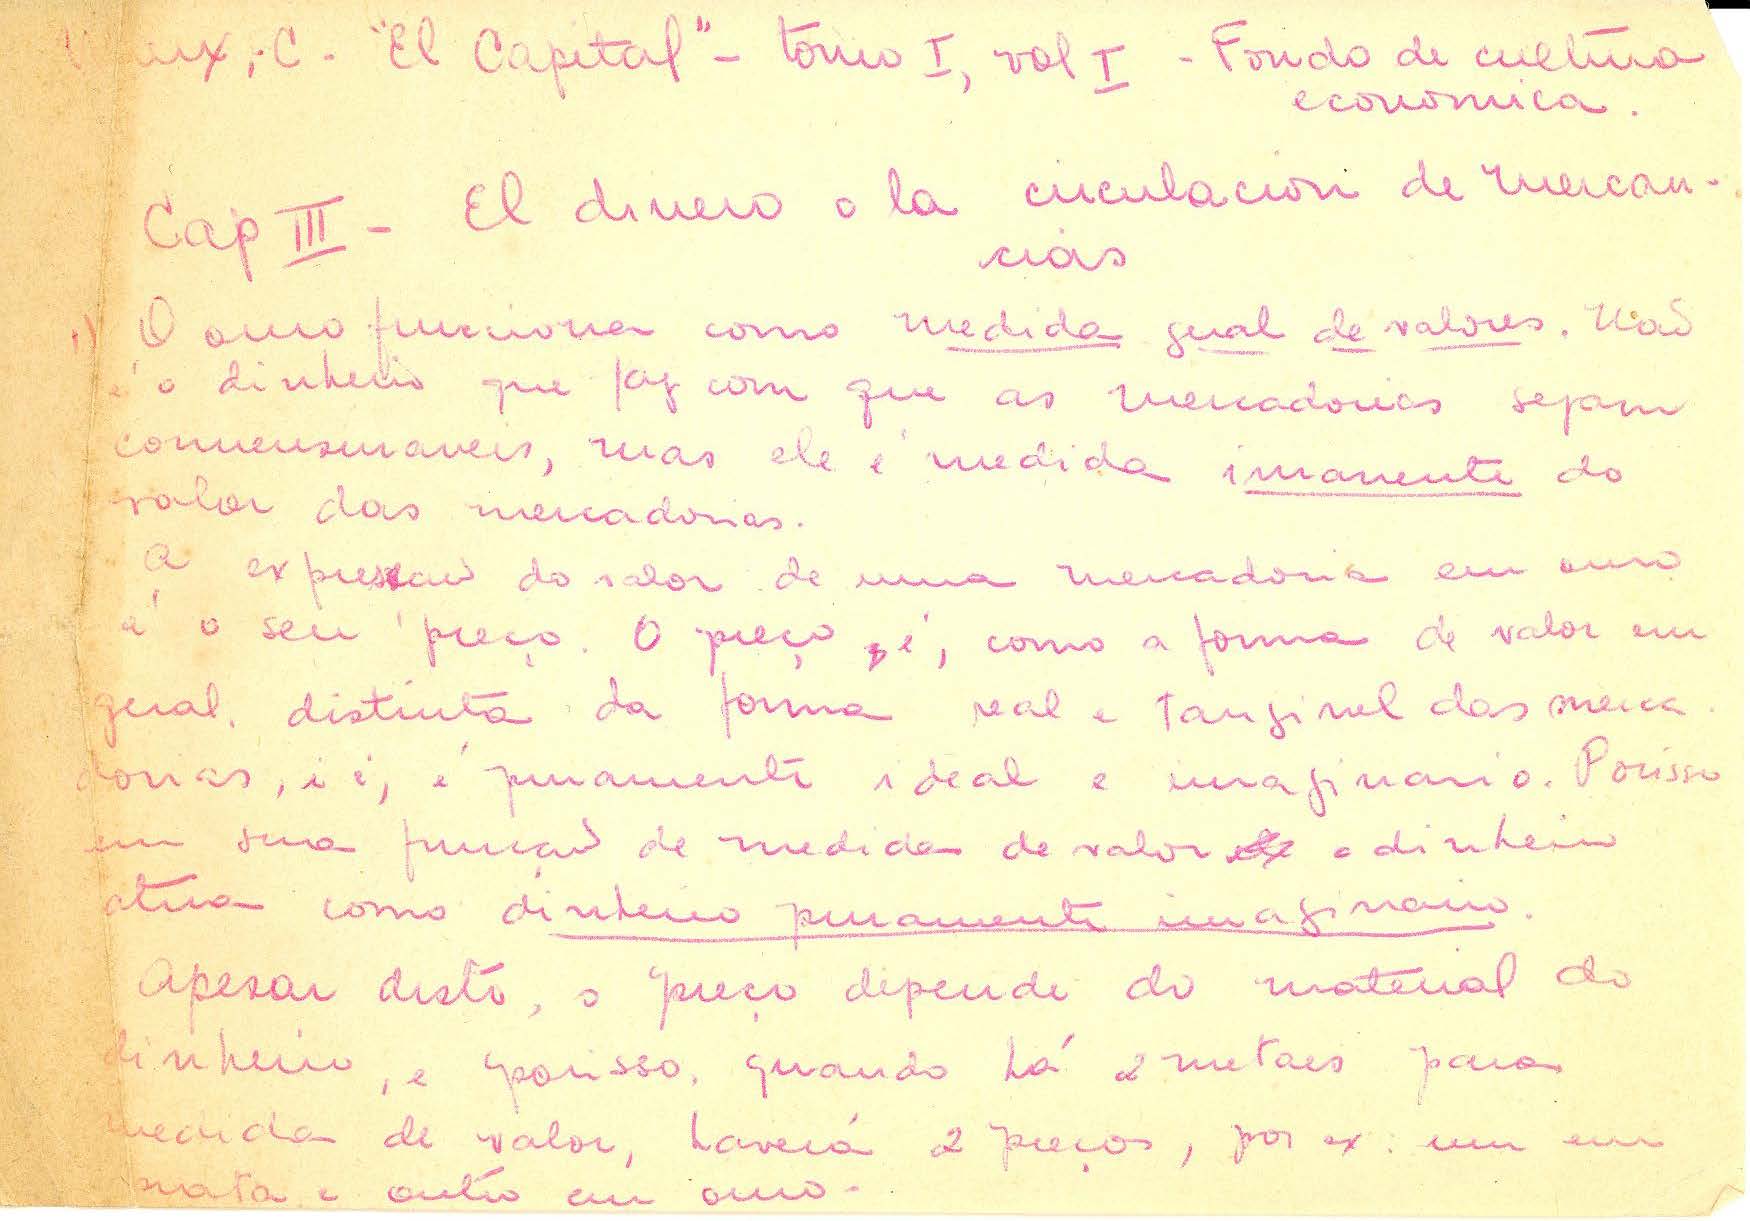 Marx, C. - "El Capital" - tomo I, vol I - Fondo de cultura
economica.
Cap III - El dinero o la circulacion de mercan-
cias
1) O ouro funciona como medida geral de valores. Não
é o dinheiro que faz com que as mercadorias sejam
comensuraveis, mas ele é medida imanente do
valor das mercadorias.
A expressão do valor de uma mercadoria em ouro
é o seu preço. O preço é, como a forma de valor em
geral, distinta da forma real e tangivel das merca-
dorias, i é, é puramente ideal e imaginario. Porisso
em sua função de medida de valor o dinheiro
atua como dinheiro puramente imaginario.
Apesar disto, o preço depende do material do
dinheiro, e porisso, quando há 2 metaes para
medida de valor, haverá 2 preços, por ex. um em
prata e outro em ouro.